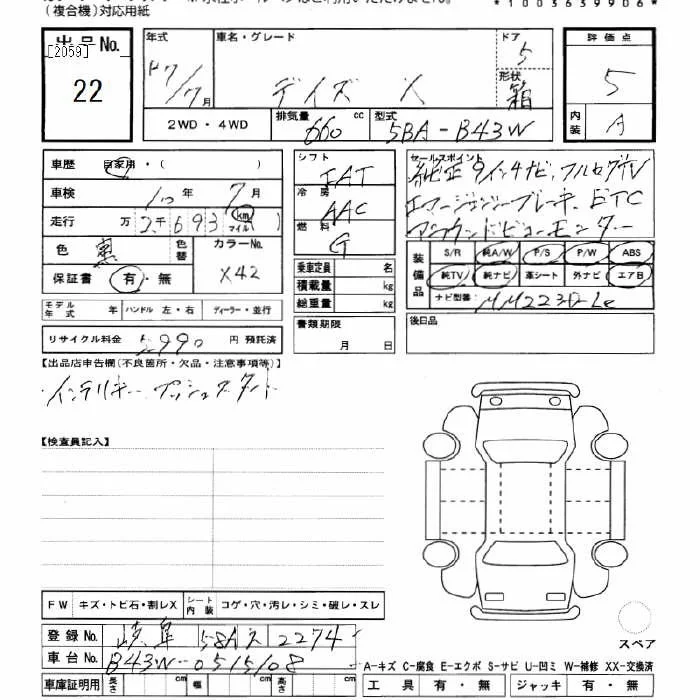 (複合機)対応用紙
*1003639906*
出品No.
[2059]
22
年式
H7/7月
車名・グレード
デイズ X
ドア
5
形状
箱
2WD・4WD
排気量 cc
660
型式
5BA-B43W
評価点
5
内装
A
車歴 自家用・( )
車検 10年 7月
走行 万 2千693 km マイル ( )
色 黒 色替
カラーNo.
X42
保証書 有・無
モデル年式 年 ハンドル 左・右 ディーラー・並行
リサイクル料金 5990 円 預託済
シフト
IAT
冷房
AAC
燃料
G
乗車定員 名
積載量 kg
総重量 kg
書類期限
月 日
セールスポイント
純正9インチナビ、フルセグTV
エマージェンシーブレーキ、ETC
アラウンドビューモニター
装備品
S/R 純A/W P/S P/W ABS
純TV 純ナビ 革シート 外ナビ エアB
ナビ型番: MM223D-Le
後日品
【出品店申告欄(不良箇所・欠品・注意事項等)】
・インテリキー、プッシュスタート
【検査員記入】
FW キズ・トビ石・割レX シート内装 コゲ・穴・汚レ・シミ・破レ・スレ
登録No. 岐阜 58A ス 2274
車台No. B43W-0515108
車庫証明用 長さ cm 幅 cm 高さ cm
スペア
A-キズ C-腐食 E-エクボ S-サビ U-凹ミ W-補修 XX-交換済
工具 有・無 ジャッキ 有・無